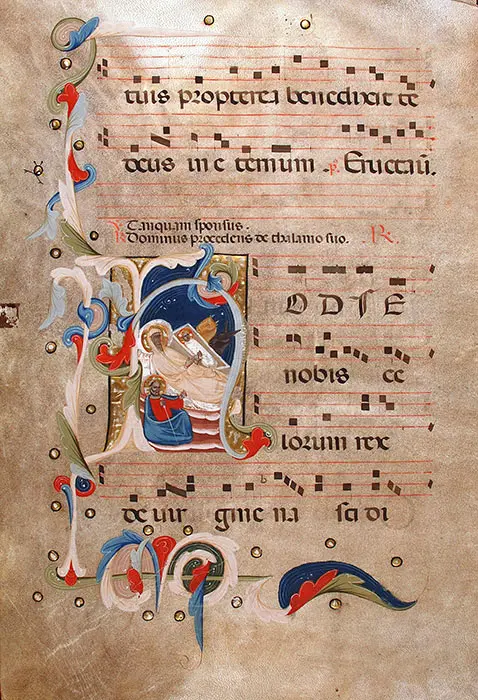 tuis propterea benedixit te
deus in e ternum . p. Eructauit.
V Tanquam sponsus .
R Dominus procedens de thalamo suo . R.
H ODIE
nobis ce
lorum rex
de uir gine na sci di